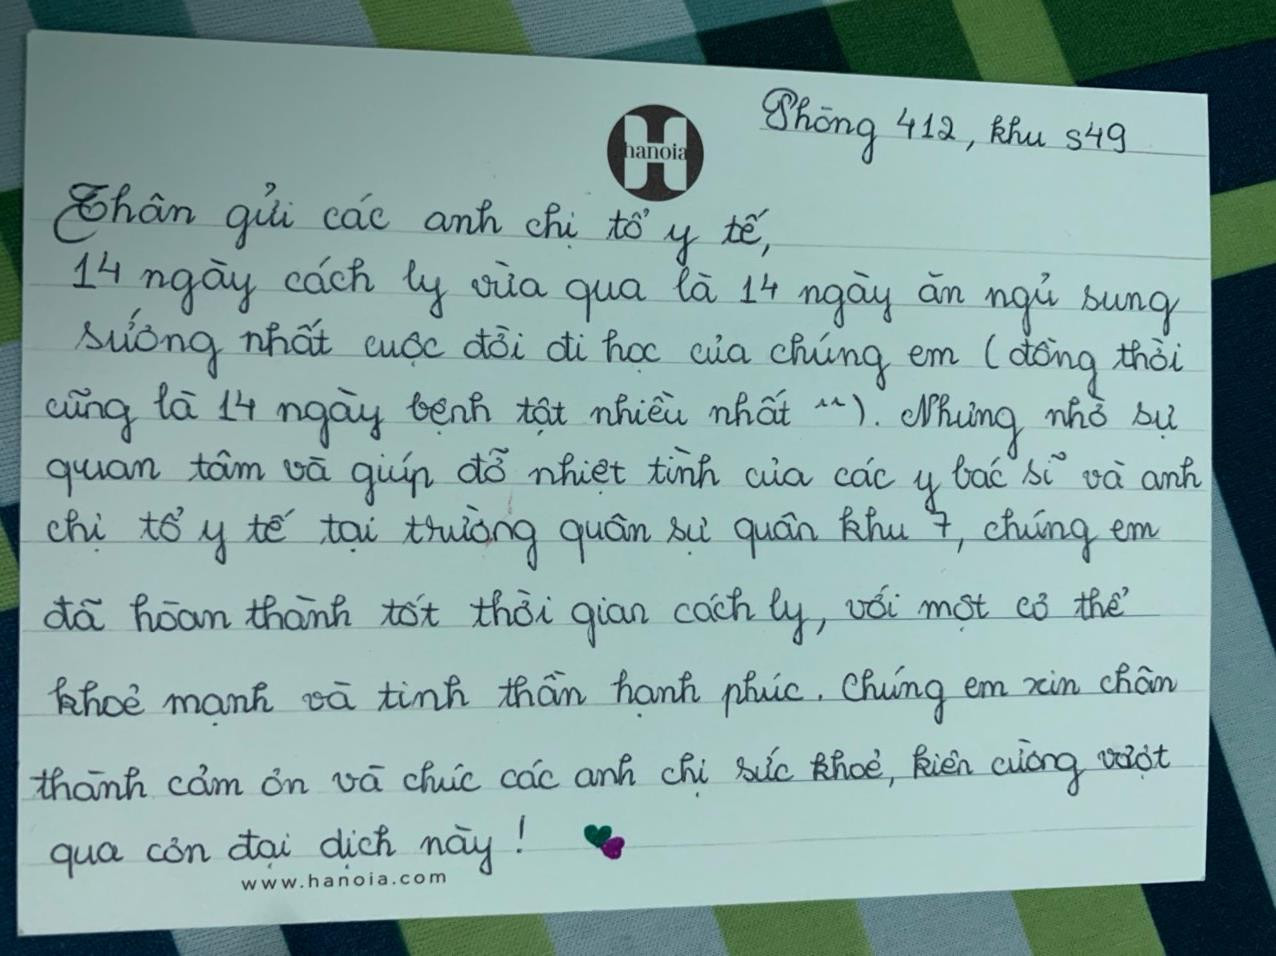 Phòng 412, khu s49
hanoia
Thân gửi các anh chị tổ y tế,
14 ngày cách ly vừa qua là 14 ngày ăn ngủ sung
sướng nhất cuộc đời đi học của chúng em (đồng thời
cũng là 14 ngày bệnh tật nhiều nhất ^^). Nhưng nhờ sự
quan tâm và giúp đỡ nhiệt tình của các y bác sĩ và anh
chị tổ y tế tại trường quân sự quân khu 7, chúng em
đã hoàn thành tốt thời gian cách ly, với một cơ thể
khoẻ mạnh và tinh thần hạnh phúc. Chúng em xin chân
thành cảm ơn và chúc các anh chị sức khoẻ, kiên cường vượt
qua cơn đại dịch này!
www.hanoia.com